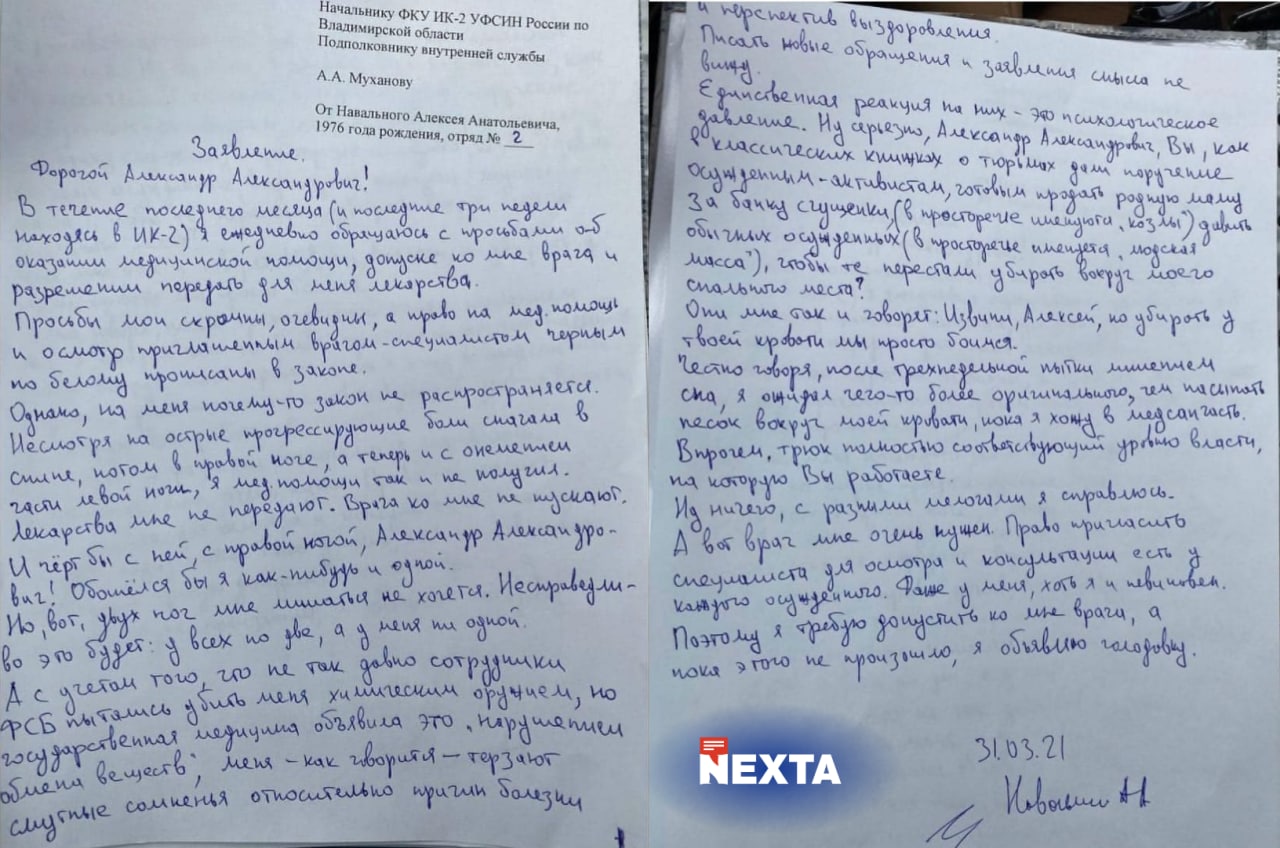 Начальнику ФКУ ИК-2 УФСИН России по
Владимирской области
Подполковнику внутренней службы
А.А. Муханову
От Навального Алексея Анатольевича,
1976 года рождения, отряд № 2
Заявление.
Дорогой Александр Александрович!
В течение последнего месяца (и последние три недели
находясь в ИК-2) я ежедневно обращаюсь с просьбами об
оказании медицинской помощи, допуске ко мне врача и
разрешении передать для меня лекарства.
Просьбы мои скромны, очевидны, а право на мед. помощь
и осмотр приглашенным врачом-специалистом черным
по белому прописаны в законе.
Однако, на меня почему-то закон не распространяется.
Несмотря на острые прогрессирующие боли сначала в
спине, потом в правой ноге, а теперь и с онемением
части левой ноги, я мед. помощи так и не получил.
Лекарства мне не передают. Врача ко мне не пускают.
И чёрт бы с ней, с правой ногой, Александр Александро-
вич! Обошёлся бы я как-нибудь и одной.
Но, вот, двух ног мне лишаться не хочется. Несправедли-
во это будет: у всех по две, а у меня ни одной.
А с учетом того, что не так давно сотрудники
ФСБ пытались убить меня химическим оружием, но
государственная медицина объявила это „нарушением
обмена веществ", меня – как говорится – терзают
смутные сомненья относительно причин болезни
и перспектив выздоровления.
Писать новые обращения и заявления смысла не
вижу.
Единственная реакция на них - это психологическое
давление. Ну серьезно, Александр Александрович, Вы, как
в классических книжках о тюрьмах дали поручение
осужденным-активистам, готовым продать родную маму
за банку сгущенки, (в просторечие именуются „козлы") давить
обычных осужденных (в просторечье именуется „людская
масса"), чтобы те перестали убирать вокруг моего
спального места?
Они мне так и говорят: Извини, Алексей, но убирать у
твоей кровати мы просто боимся.
Честно говоря, после трехнедельной пытки лишением
сна, я ожидал чего-то более оригинального, чем насыпать
песок вокруг моей кровати, пока я хожу в медсанчасть.
Впрочем, трюк полностью соответствующий уровню власти,
на которую Вы работаете.
Ну ничего, с разными мелочами я справлюсь.
А вот врач мне очень нужен. Право пригласить
специалиста для осмотра и консультации есть у
каждого осужденного. Даже у меня, хоть я и невиновен.
Поэтому я требую допустить ко мне врача, а
пока этого не произошло, я объявляю голодовку.
31.03.21
Навальный АА
NEXTA